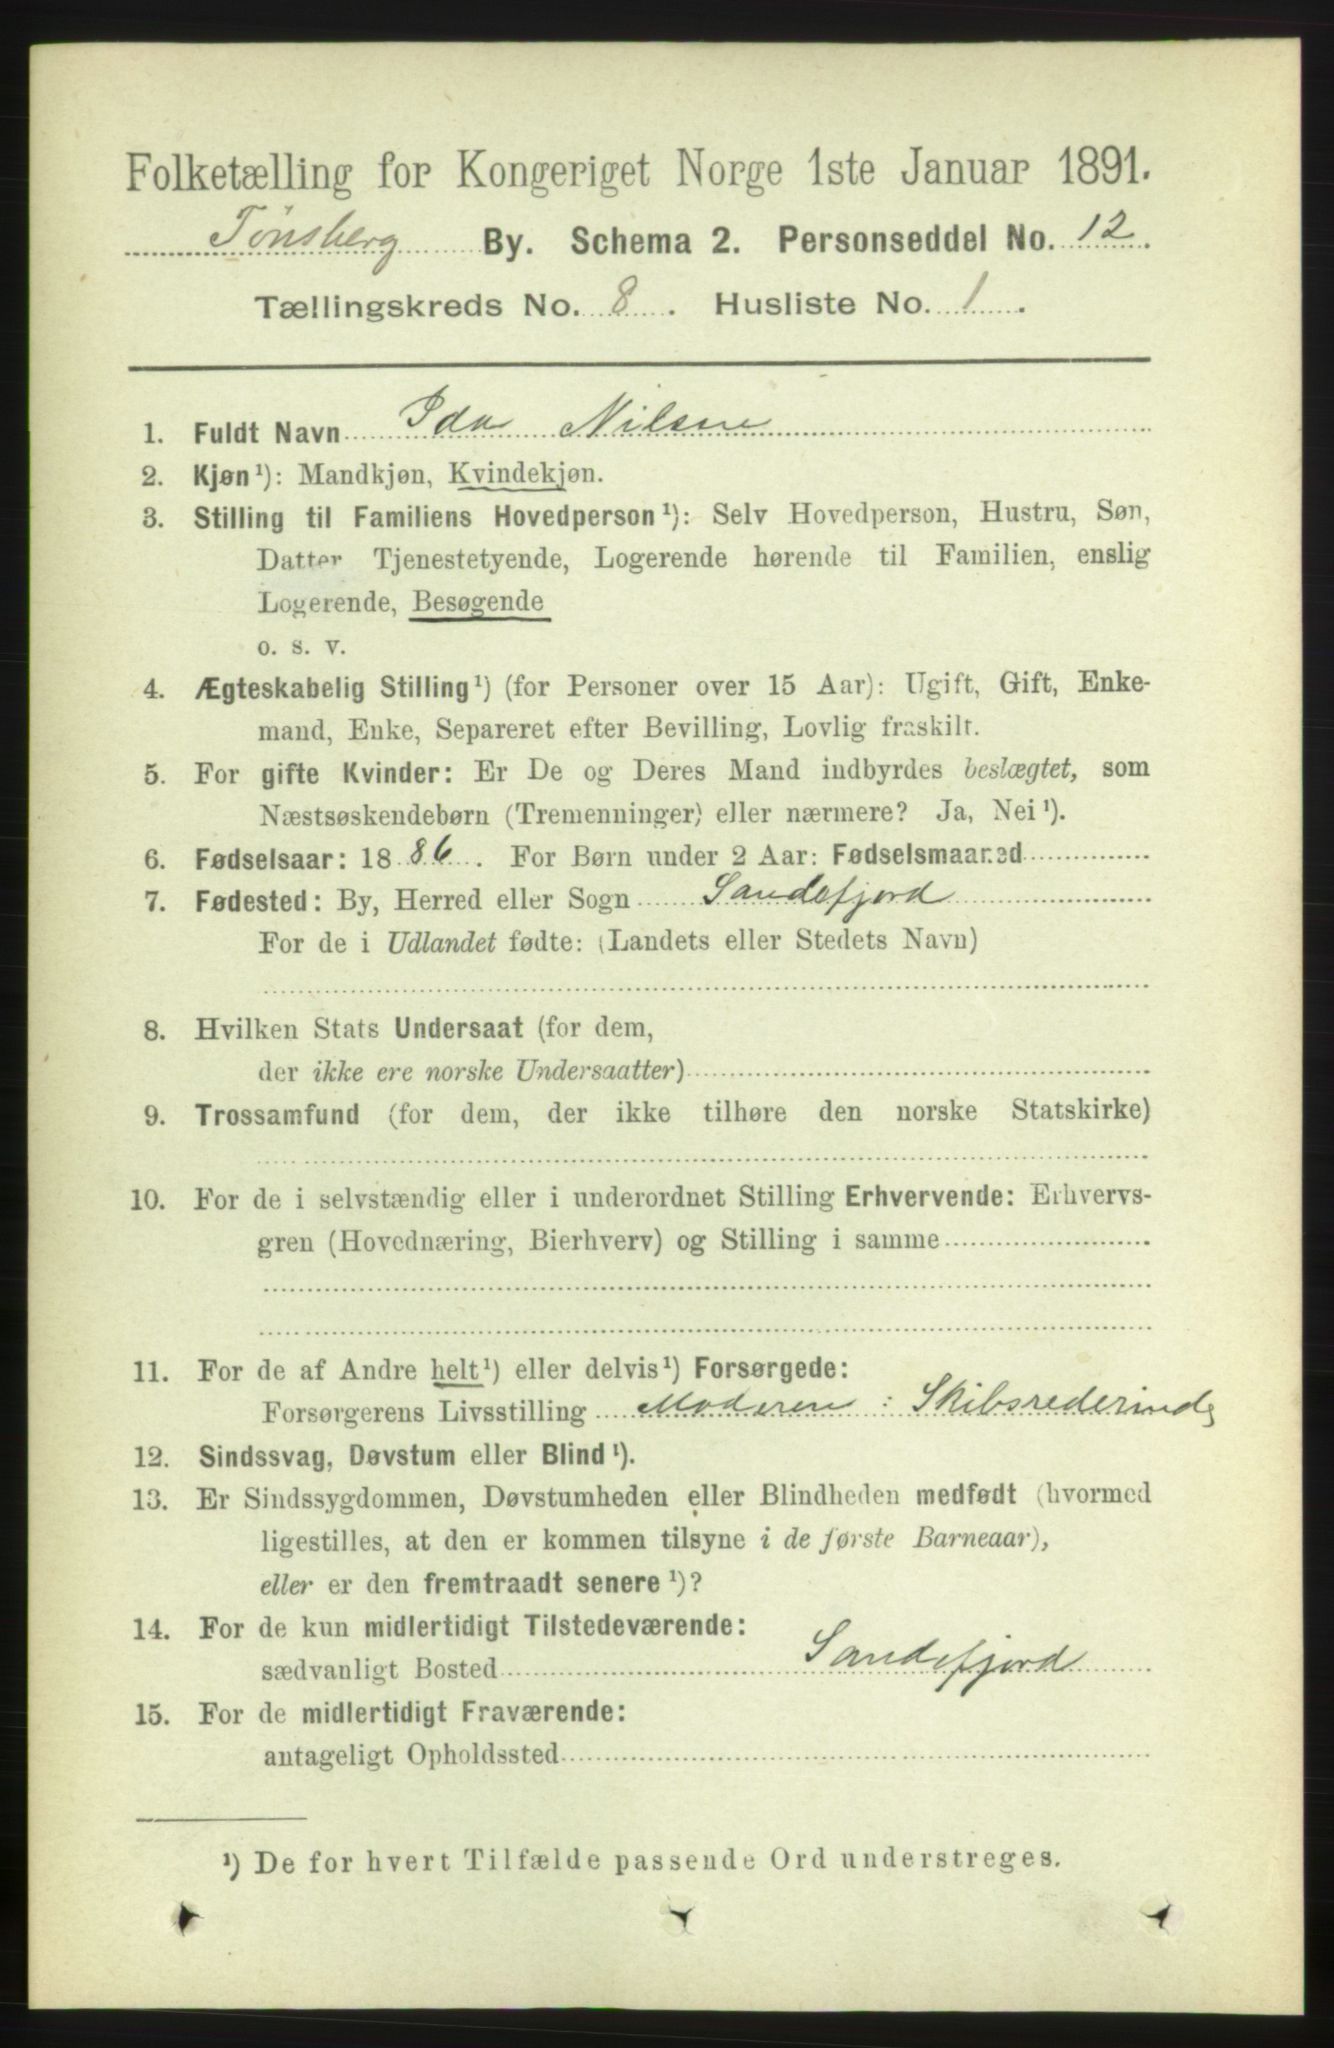 Folketælling for Kongeriget Norge 1ste Januar 1891.
Tønsberg By. Schema 2. Personseddel No. 12.
Tællingskreds No. 8. Husliste No. 1.
1. Fuldt Navn Ida Nilsen
2. Kjøn¹): Mandkjøn, Kvindekjøn.
3. Stilling til Familiens Hovedperson¹): Selv Hovedperson, Hustru, Søn,
Datter Tjenestetyende, Logerende hørende til Familien, enslig
Logerende, Besøgende
o. s. v.
4. Ægteskabelig Stilling¹) (for Personer over 15 Aar): Ugift, Gift, Enke-
mand, Enke, Separeret efter Bevilling, Lovlig fraskilt.
5. For gifte Kvinder: Er De og Deres Mand indbyrdes beslægtet, som
Næstsøskendebørn (Tremenninger) eller nærmere? Ja, Nei¹).
6. Fødselsaar: 1886. For Børn under 2 Aar: Fødselsmaaned
7. Fødested: By, Herred eller Sogn Sandefjord
For de i Udlandet fødte: (Landets eller Stedets Navn)
8. Hvilken Stats Undersaat (for dem,
der ikke ere norske Undersaatter)
9. Trossamfund (for dem, der ikke tilhøre den norske Statskirke)
10. For de i selvstændig eller i underordnet Stilling Erhvervende: Erhvervs-
gren (Hovednæring, Bierhverv) og Stilling i samme
11. For de af Andre helt¹) eller delvis¹) Forsørgede:
Forsørgerens Livsstilling Moderen: Skibsrederinde
12. Sindssvag, Døvstum eller Blind¹).
13. Er Sindssygdommen, Døvstumheden eller Blindheden medfødt (hvormed
ligestilles, at den er kommen tilsyne i de første Barneaar),
eller er den fremtraadt senere¹)?
14. For de kun midlertidigt Tilstedeværende:
sædvanligt Bosted Sandefjord
15. For de midlertidigt Fraværende:
antageligt Opholdssted
¹) De for hvert Tilfælde passende Ord understreges.